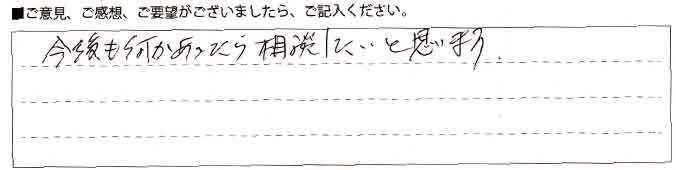 ■ご意見、ご感想、ご要望がございましたら、ご記入ください。
今後も何かあったら相談したいと思います。